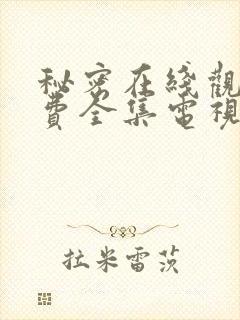 秘密在綫觀
費全集電視
拉米雷茨